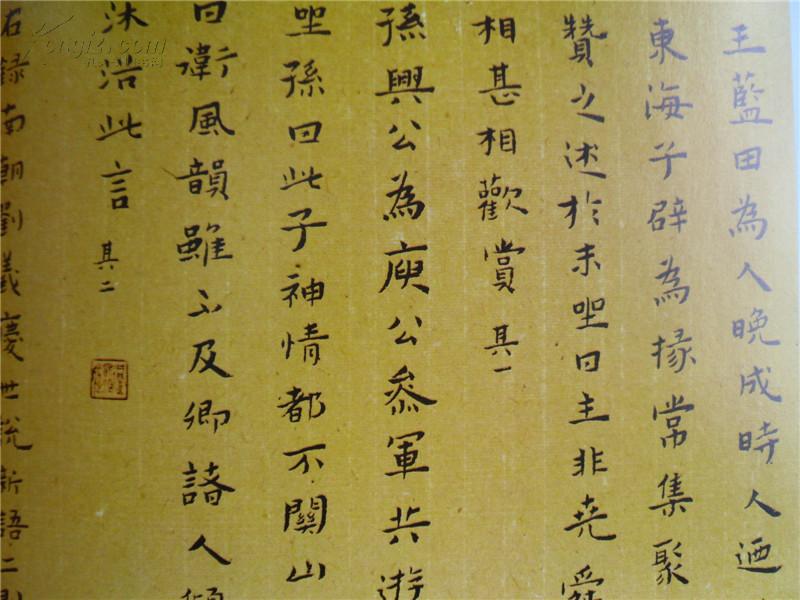 王藍田為人晚成時人迺
東海子辟為掾常集聚
贊之述於末坐曰主非堯舜
相甚相歡賞 其一
孫興公為庾公參軍共遊
坐孫曰此子神情都不關山
曰衛風韻雖不及卿諸人傾
沐浴此言 其二
右錄南朝劉義慶世說新語二則